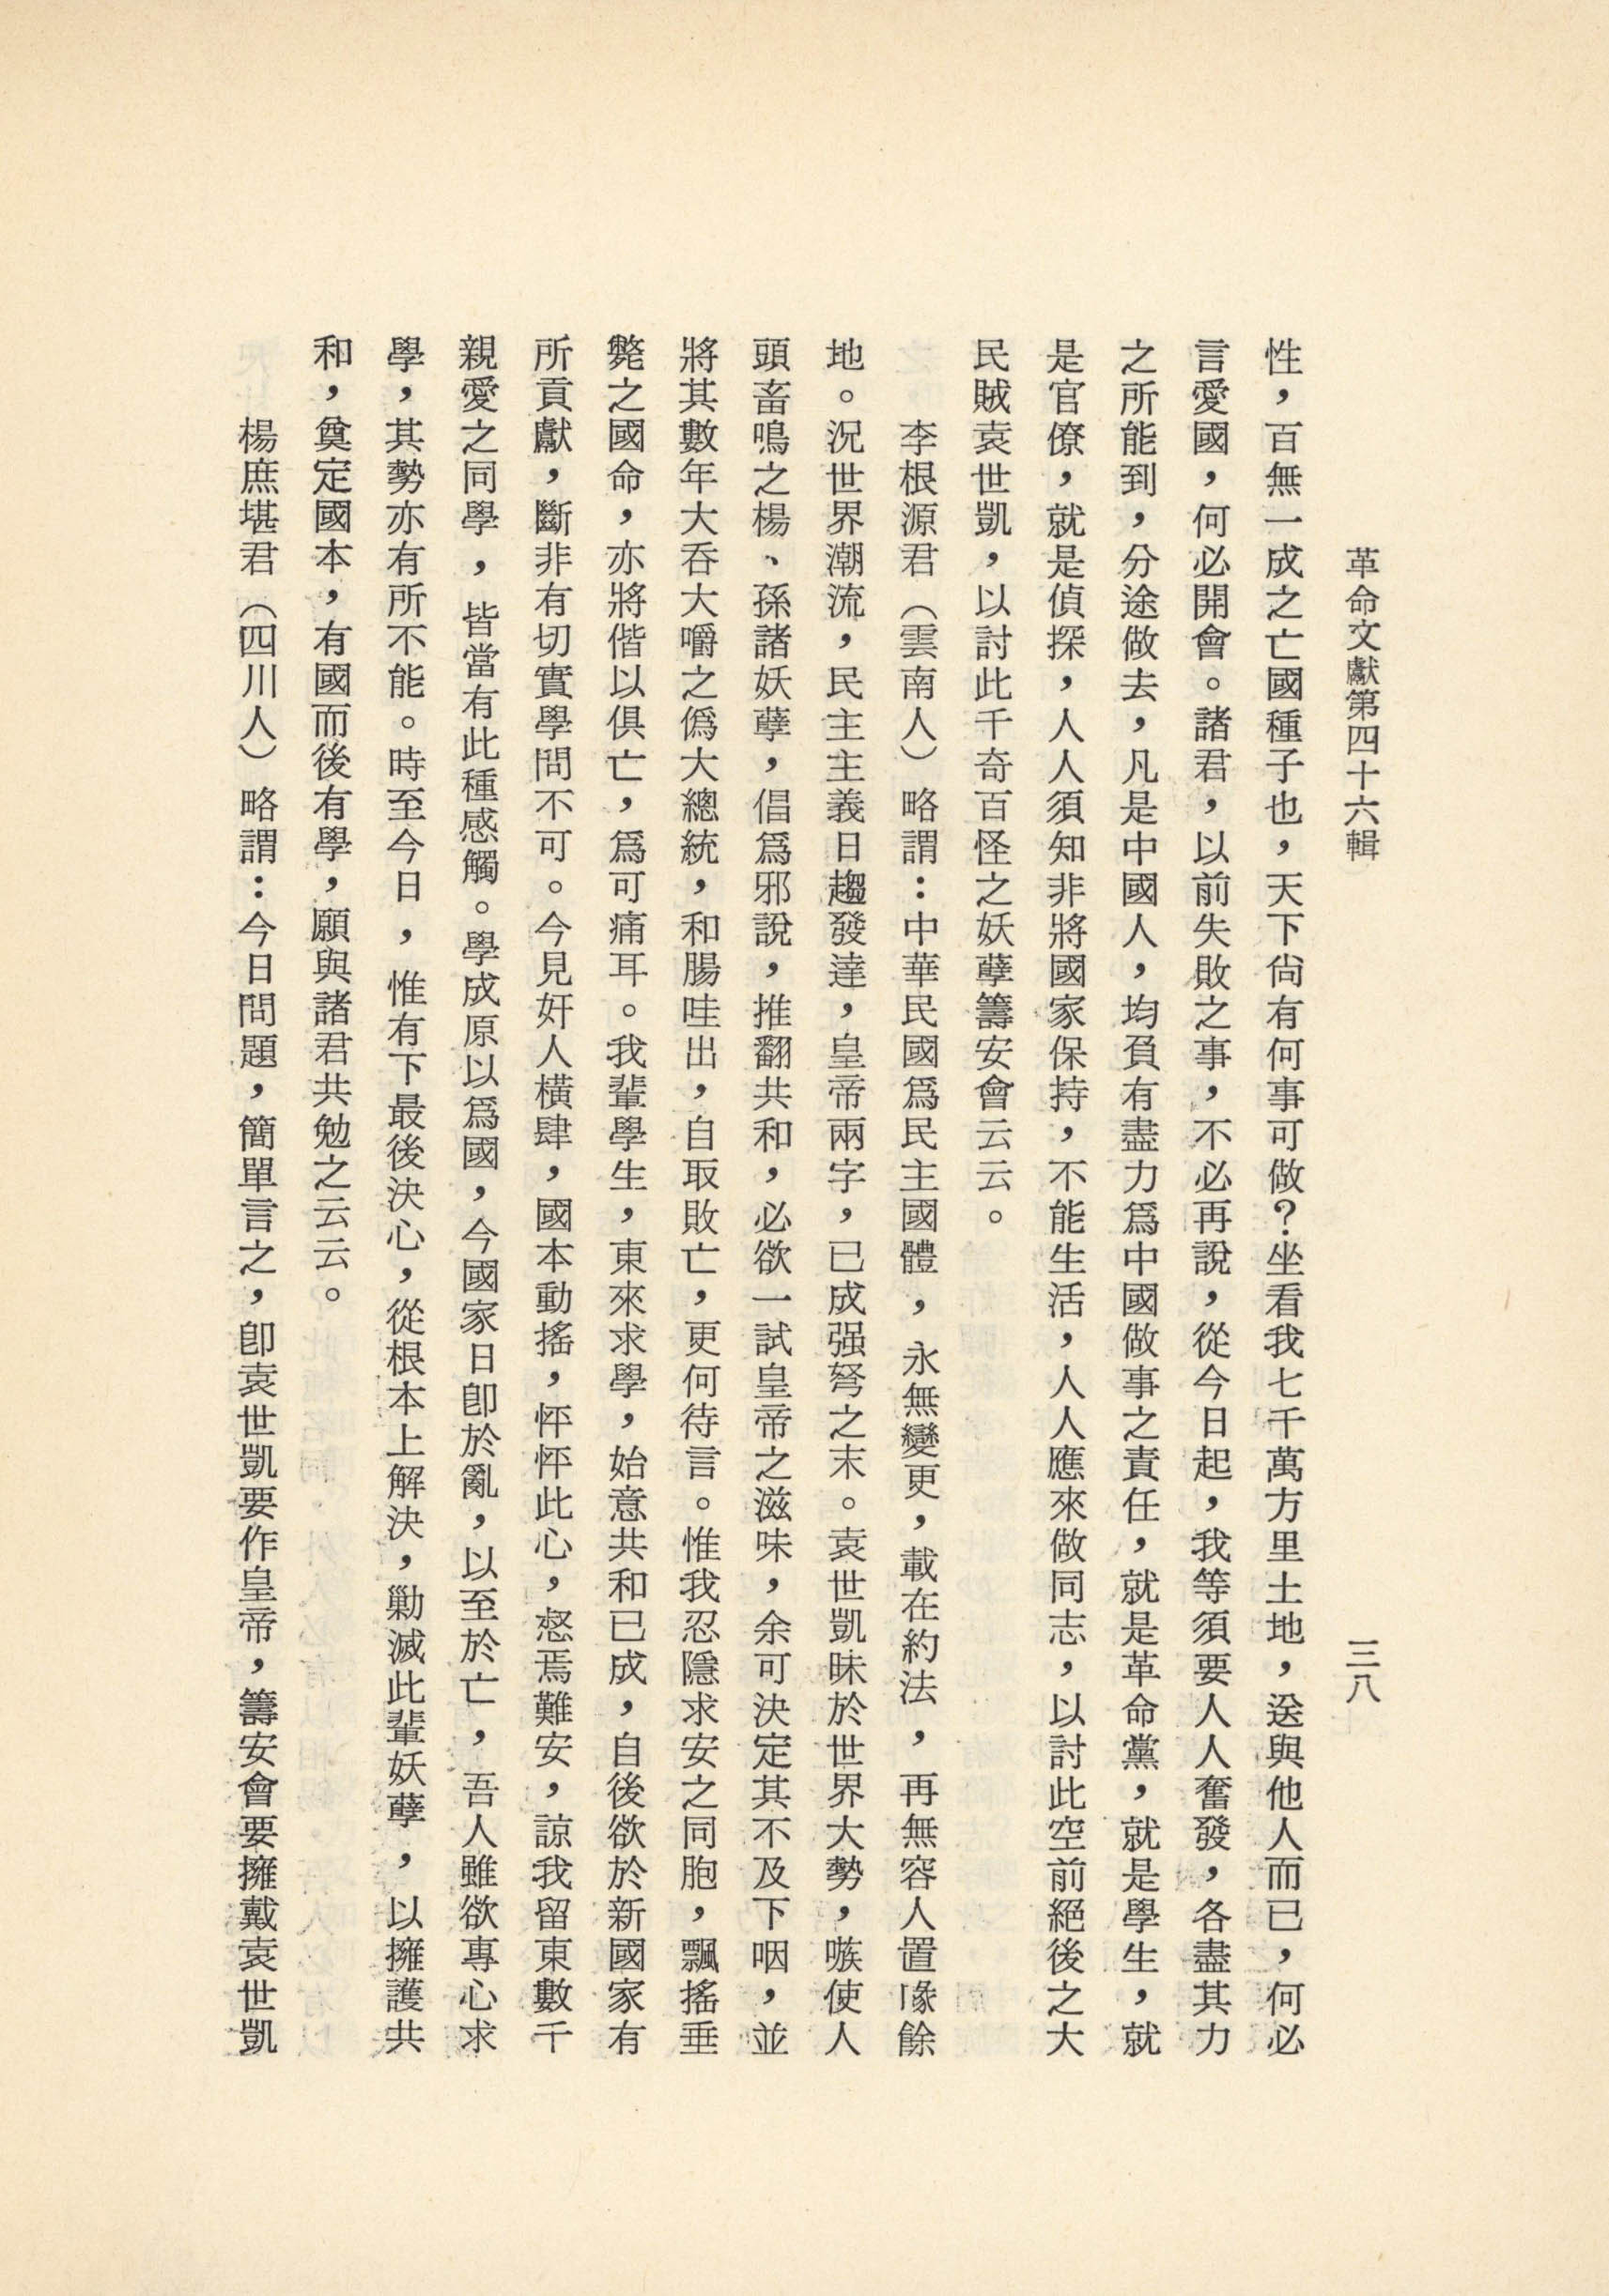 革命文獻第四十六輯
三八
性，百無一成之亡國種子也，天下尙有何事可做？坐看我七千萬方里土地，送與他人而已，何必
言愛國，何必開會。諸君，以前失敗之事，不必再說，從今日起，我等須要人人奮發，各盡其力
之所能到，分途做去，凡是中國人，均負有盡力爲中國做事之責任，就是革命黨，就是學生，就
是官僚，就是偵探，人人須知非將國家保持，不能生活，人人應來做同志，以討此空前絕後之大
民賊袁世凱，以討此千奇百怪之妖孽籌安會云云。
李根源君（雲南人）略謂：中華民國爲民主國體，永無變更，載在約法，再無容人置喙餘
地。況世界潮流，民主主義日趨發達，皇帝兩字，已成强弩之末。袁世凱昧於世界大勢，嗾使人
頭畜鳴之楊、孫諸妖孽，倡爲邪說，推翻共和，必欲一試皇帝之滋味，余可決定其不及下咽，並
將其數年大吞大嚼之僞大總統，和腸哇出，自取敗亡，更何待言。惟我忍隱求安之同胞，飄搖垂
斃之國命，亦將偕以俱亡，爲可痛耳。我輩學生，東來求學，始意共和已成，自後欲於新國家有
所貢獻，斷非有切實學問不可。今見奸人橫肆，國本動搖，怦怦此心，惄焉難安，諒我留東數千
親愛之同學，皆當有此種感觸。學成原以爲國，今國家日卽於亂，以至於亡，吾人雖欲專心求
學，其勢亦有所不能。時至今日，惟有下最後決心，從根本上解決，勦滅此輩妖孽，以擁護共
和，奠定國本，有國而後有學，願與諸君共勉之云云。
楊庶堪君（四川人）略謂：今日問題，簡單言之，卽袁世凱要作皇帝，籌安會要擁戴袁世凱